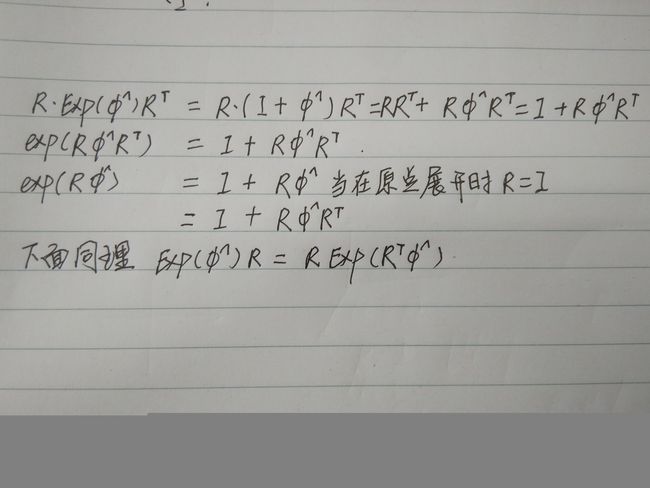 R·Exp(φ^)Rᵀ = R·(I+φ^)Rᵀ=RRᵀ+ Rφ^Rᵀ=I+Rφ^Rᵀ
exp(Rφ^Rᵀ) = I+Rφ^Rᵀ.
exp(Rφ^) = I+Rφ^ 当在原点展开时 R=I
= I + Rφ^Rᵀ
下面同理 Exp(φ^)R = R Exp(Rᵀφ^)